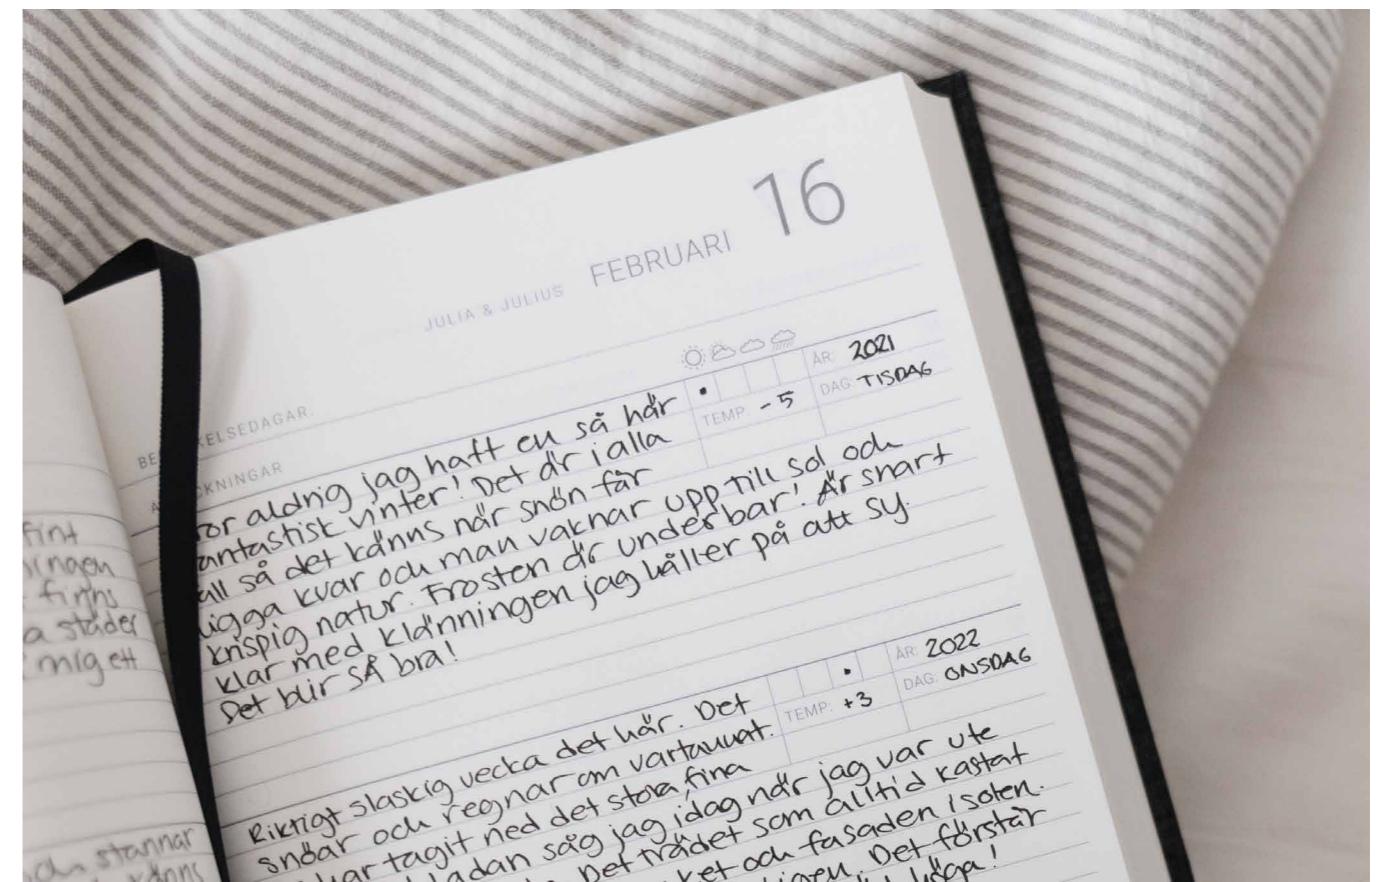 fint
finns
a städer
mig ett
och stannar
känns
16
FEBRUARI
JULIA & JULIUS
ELSEDAGAR:
CKNINGAR
ÅR: 2021
DAG: TISDAG
TEMP: -5
or aldrig jag haft en så här
antastisk vinter! Det är i alla
all så det känns när snön får
ligga kvar och man vaknar upp till sol och
krispig natur. Frosten är underbar! Är snart
klar med klänningen jag håller på att sy.
Det blir SÅ bra!
ÅR: 2022
DAG: ONSDAG
TEMP: +3
Riktigt slaskig vecka det här. Det
snöar och regnar om vartannat.
har tagit ned det stora, fina
ladan såg jag idag när jag var ute
Det trädet som alltid kastat
ket och fasaden i solen.
igen. Det förstår